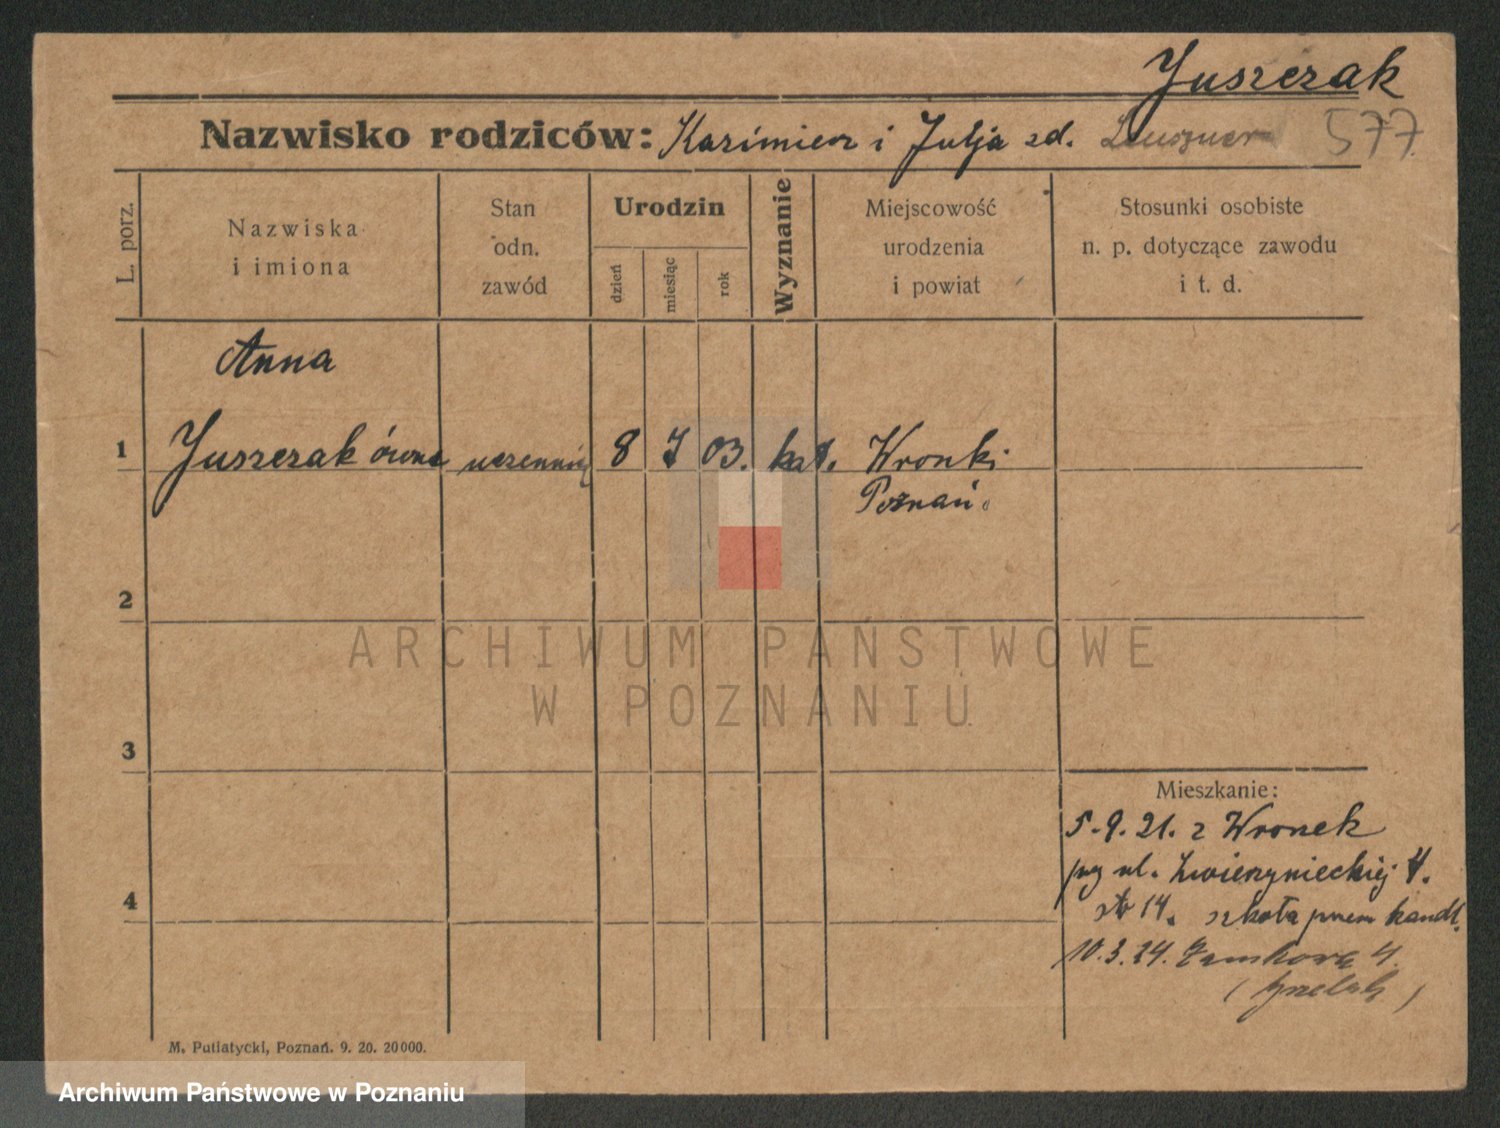 Juszczak
Nazwisko rodziców: Kazimierz i Julja zd. 577.
L. porz.
Nazwiska
i imiona
Stan
odn.
zawód
Urodzin
dzień
miesiąc
rok
Wyznanie
Miejscowość
urodzenia
i powiat
Stosunki osobiste
n. p. dotyczące zawodu
i t. d.
Anna
1 Juszczakówna uczennicą 8 7 03. kat. Wronki
Poznań.
2
3
4
Mieszkanie:
5.9.21. z Wronek
przy ul. Zwierzynieckiej
14. szkoła przem handl.
10.3.24. Zamkowa 4.
M. Putiatycki, Poznań. 9. 20. 20000.
ARCHIWUM PAŃSTWOWE
W POZNANIU
Archiwum Państwowe w Poznaniu